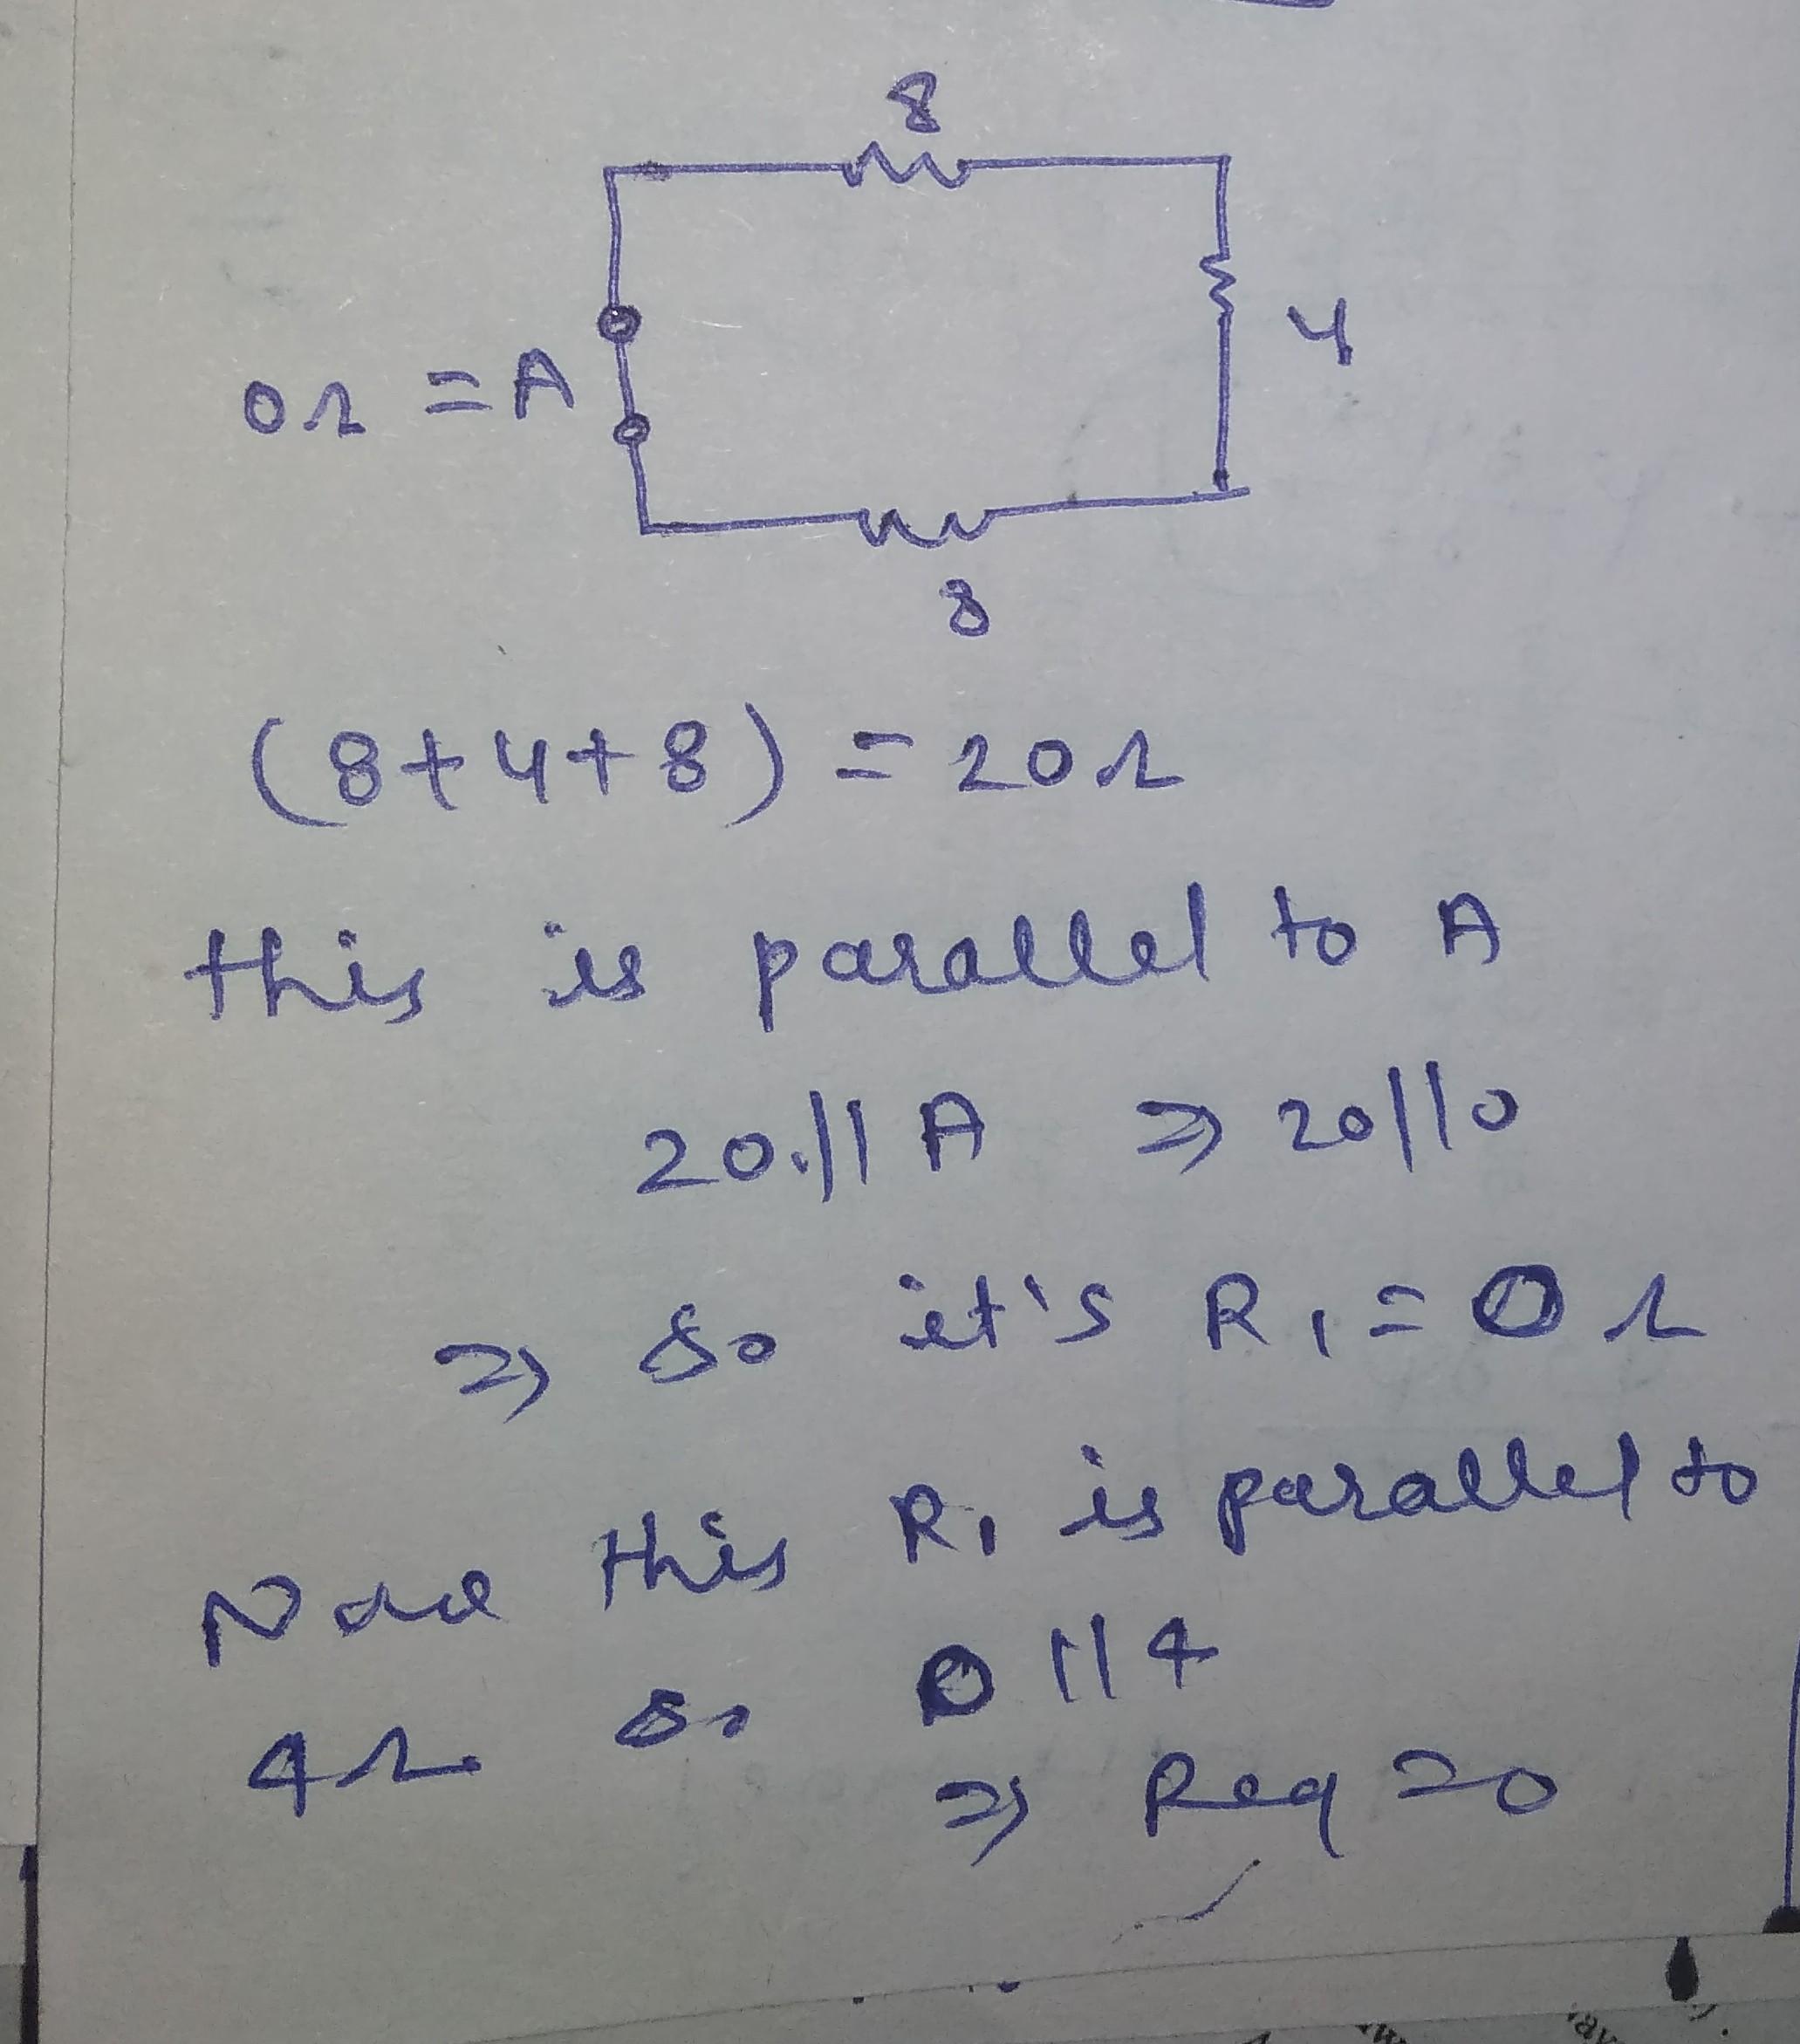 8
4
0Ω = A
8
(8+4+8) = 20Ω
this is parallel to A
20.|| A ⇒ 20||0
⇒ So it's R₁ = 0Ω
Now this R₁ is parallel to
4Ω So 0||4
⇒ Req = 0